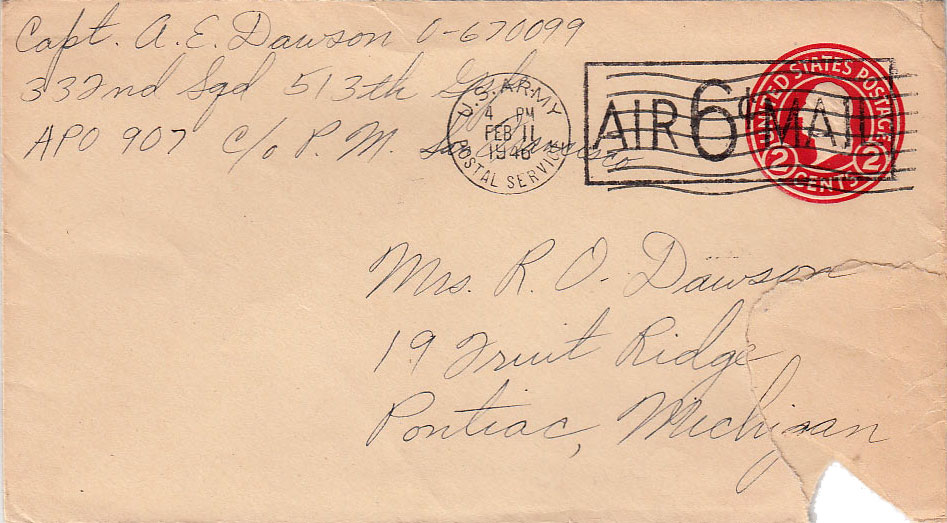 Capt. A. E. Dawson O-670099
332nd Sqd 513th Gp
APO 907 c/o P. M. San Francisco
U.S. ARMY
4 PM
FEB 11
1946
POSTAL SERVICE
AIR 6¢ MAIL
UNITED STATES POSTAGE
2 CENTS 2
Mrs. R. O. Dawson
19 Fruit Ridge
Pontiac, Michigan